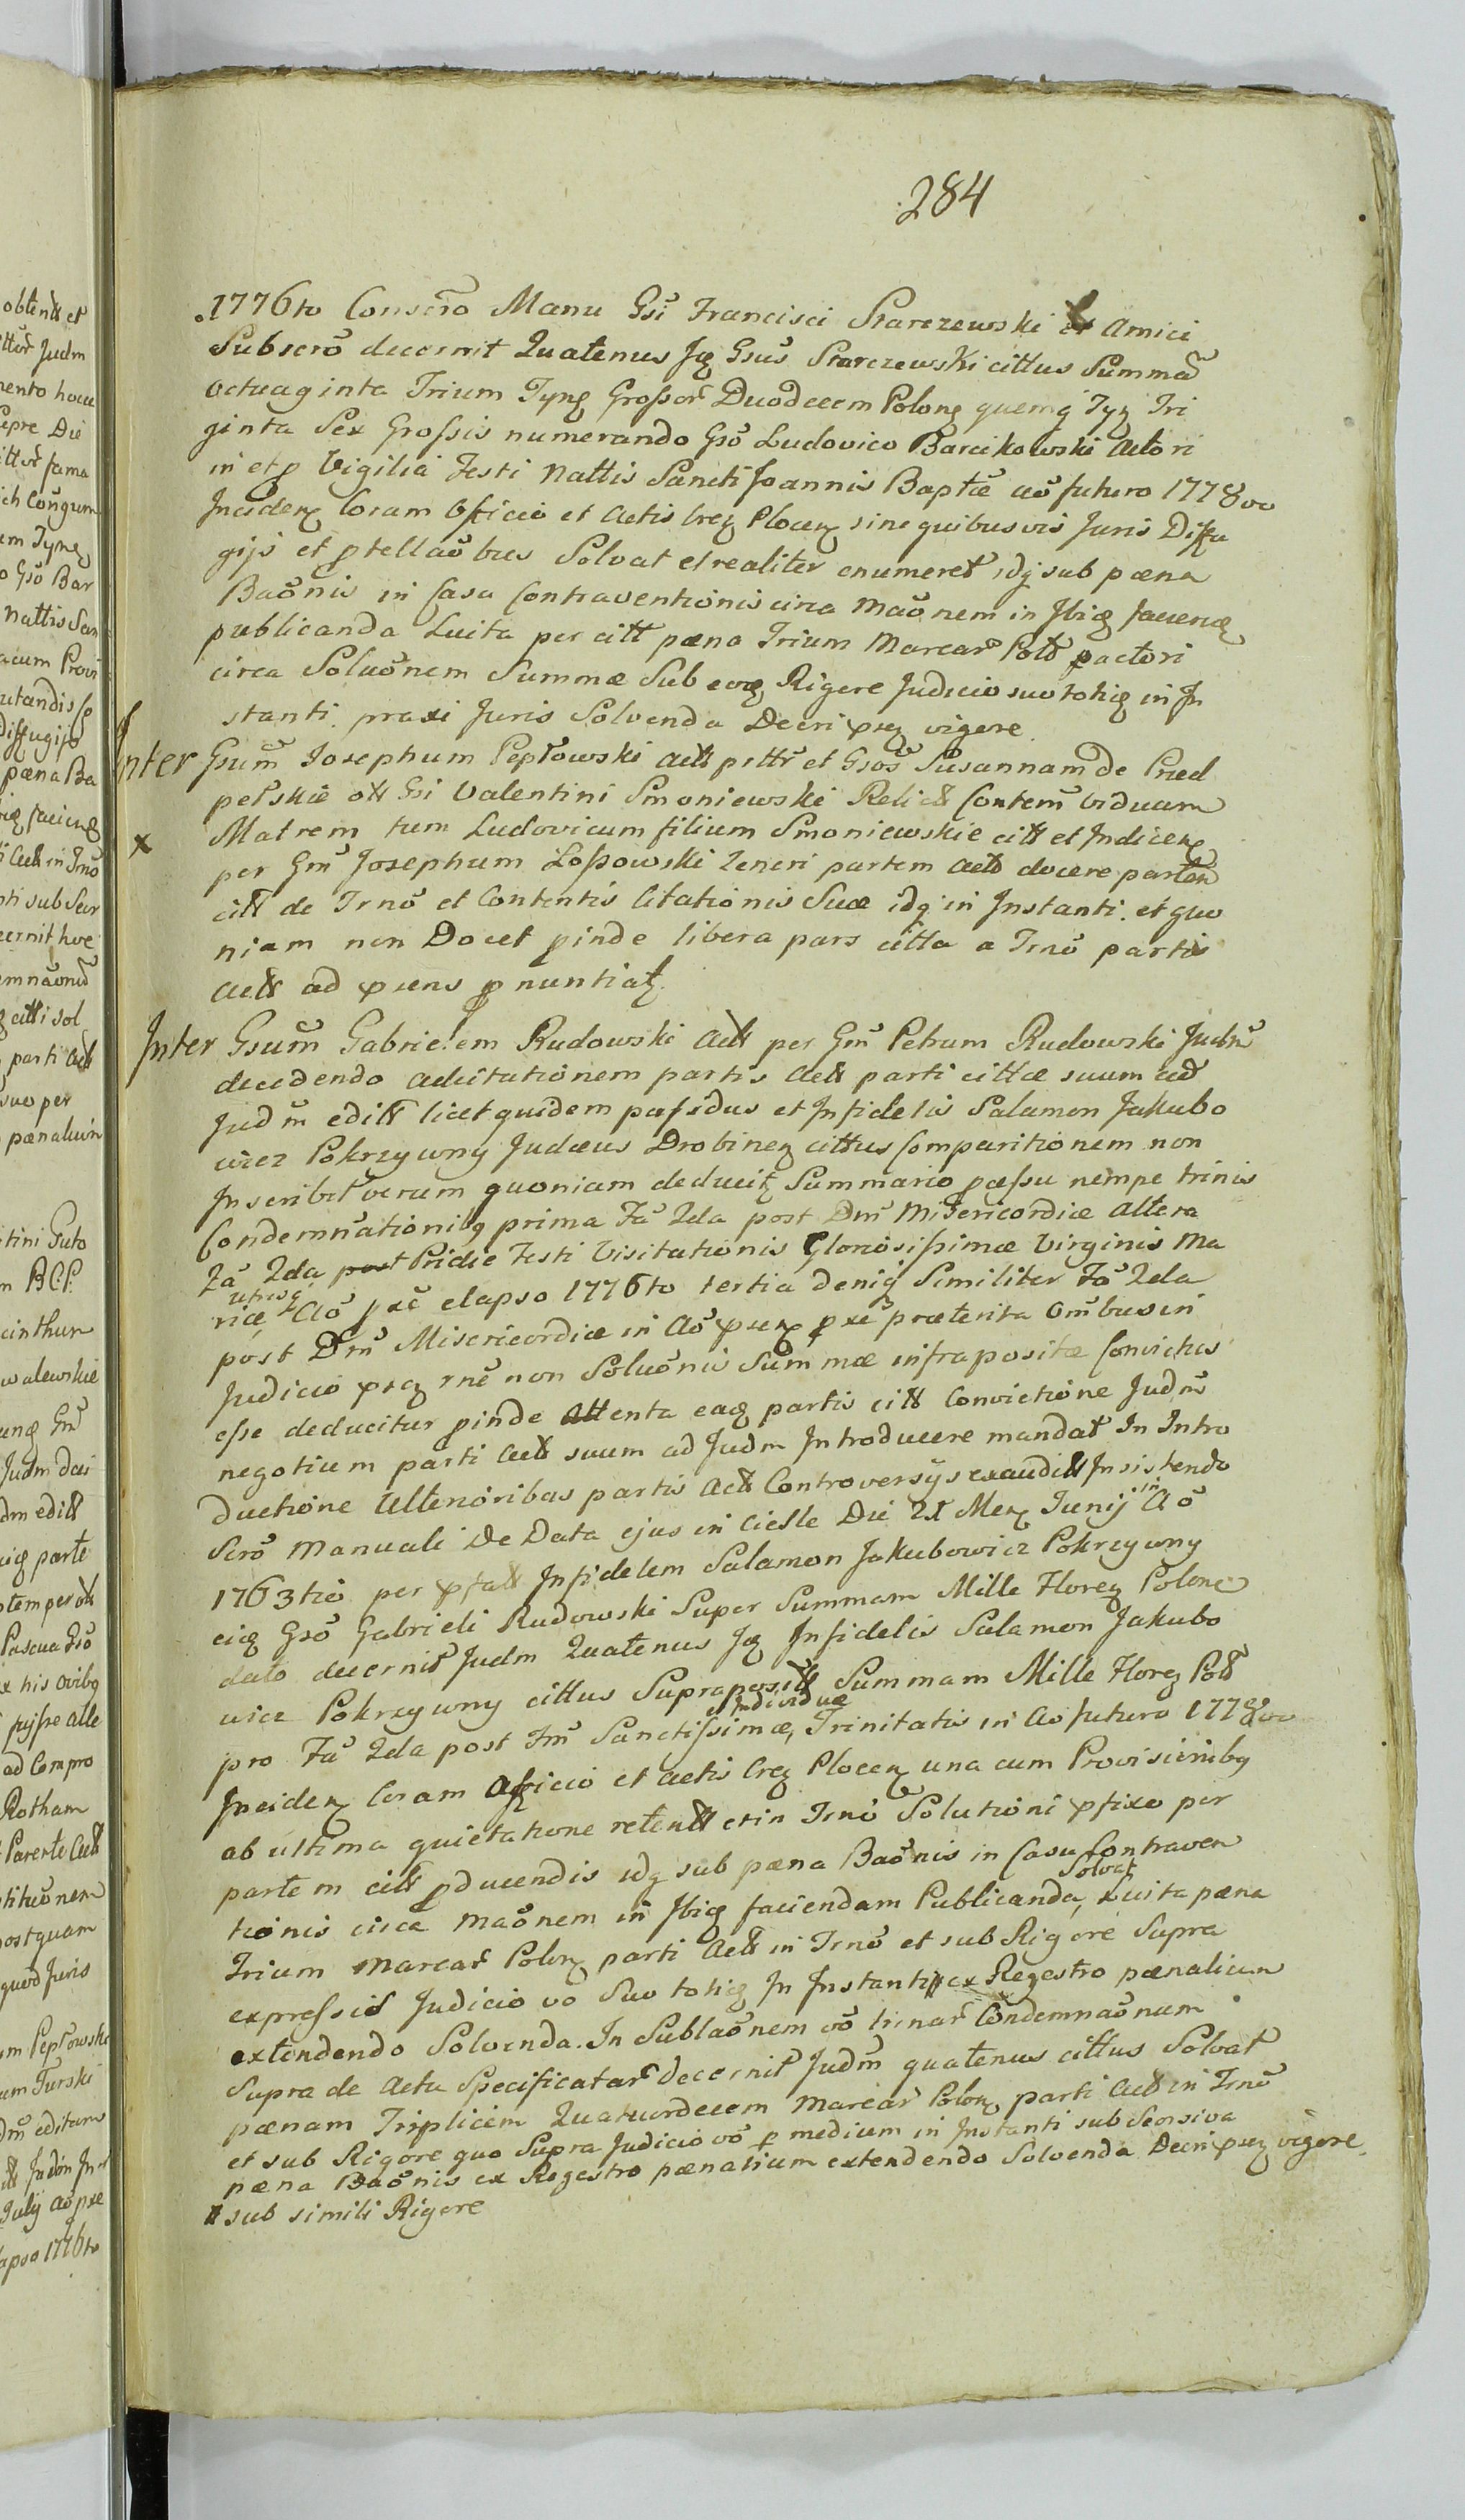 284
1776to Conscrō Manu Gsi Francisci Starczewski et Amici
Subscrō decernit Quatenus Jq Gsus Starczewski cittus Summā
octuaginta Trium Tynq Grossor Duodecem Polonq quemq Tyq Tri
ginta Sex Grossis numerando Gsō Ludovico Barcikowski Actori
in et p Vigilia Festi Nattis Sancti Joannis Baptæ aō futuro 1778vo
Inciden Coram Officio et Actis Crez Plocen sine quibusvis Juris Diffu
gijs et ptellaōbus Solvat et realiter enumeret idq sub pœna
Baōnis in Casu Contraventionis circa Maōnem in Jbiq facien
publicanda Luita per citt pœna Trium Marcar Poł pactori
circa Soluōnem Summæ Sub eoq Rigore Judicio suo tohiq in Jn
stanti praxi Juris Solvenda Decri psen vigore
Inter Gsum Josephum Pepłowski actt pttr et Gsos Susannam de Pried
pełskie ott Gsi Valentini Smoniewski Relict Contem viduam
x Matrem tum Ludovicum filium Smoniewskie citt et Indicen
per Gm Josephum Łossowski teneri partem actt docere partem
citt de Trnō et Contentis Citationis Suæ idq in Instanti et quo
niam non Docet pinde libera pars citta a Trnō partis
actt ad psens pnuntiat
Inter Gsum Gabrielem Rudowski Actt per Gm Petrum Rudowski Judm
decidendo adcitationem partis actt parti cittæ suum ad
Judm editt licet quidem pafsidus et Infidelis Salamon Jakubo
wicz Pokrzywny Judæus Drobinen cittus Comparitionem non
Inscribit verum quoniam deducit Summario passu nempe trinis
Condemnationibq prima Fa 2da post Dm Misericordiæ altera
Fa 2da post Pridie Festi Visitationis Gloriosissimæ Virginis Ma
riæ utrisq Aō pxē elapso 1776to tertia deniq Similiter Fa 2da
post Dm Misericordiæ in Aō psen pxē præterita omibus in
Judicio psen rnē non Soluōnis Summæ infrapositæ Convictus
esse deducitur pinde attenta eaq partis citt Convictione Judm
negotium parti actt suum ad Judm Introducere mandat In Intro
ductione Ulterioribus partis Actt Controversijs exauditt Insistendo
Scrō Manuali De Data ejus in Cieśle Die 21 Men Junij in Aō
1763tio per pfatt Infidelem Salamon Jakubowicz Pokrzywny
eiq Gsō Gabrieli Rudowski Super Summam Mille Floren Polone
dato decernit Judm Quatenus Jq Infidelis Salamon Jakubo
wicz Pokrzywny cittus Supraposit Summam Mille Floren Poł
pro Fa 2da post Fm Sanctissimæ et Individuæ Trinitatis in Aō futuro 1778vo
Inciden Coram Officio et Actis Crez Plocen una cum Provisionibq
ab ultima quietatione retentt et in Trnō Solutioni pfixo per
partem citt pducendis idq sub pœna Baōnis in Casu Contraven
tionis circa Maōnem in Jbiq faciendam Publicanda, Solvat Luita pœna
Trium Marcar Polon parti Actt in Trnō et sub Rigore Supra
expressis Judicio vō Suo tohiq In Instanti ex Regestro pœnalium
extendendo Solvenda. In Sublaōnem vō trinar Condemnaōnum
Supra de Actu Specificatar Decernit Judm quatenus cittus Solvat
pœnam Triplicem Quatuordecem Marcar Polon parti Actt in Trnō
et sub Rigore quo Supra Judicio vō p medium in Instanti sub Seorsiva
pœna Baōnis ex Regestro pœnalium extendendo Solvenda Decri psen vigore
sub simili Rigore